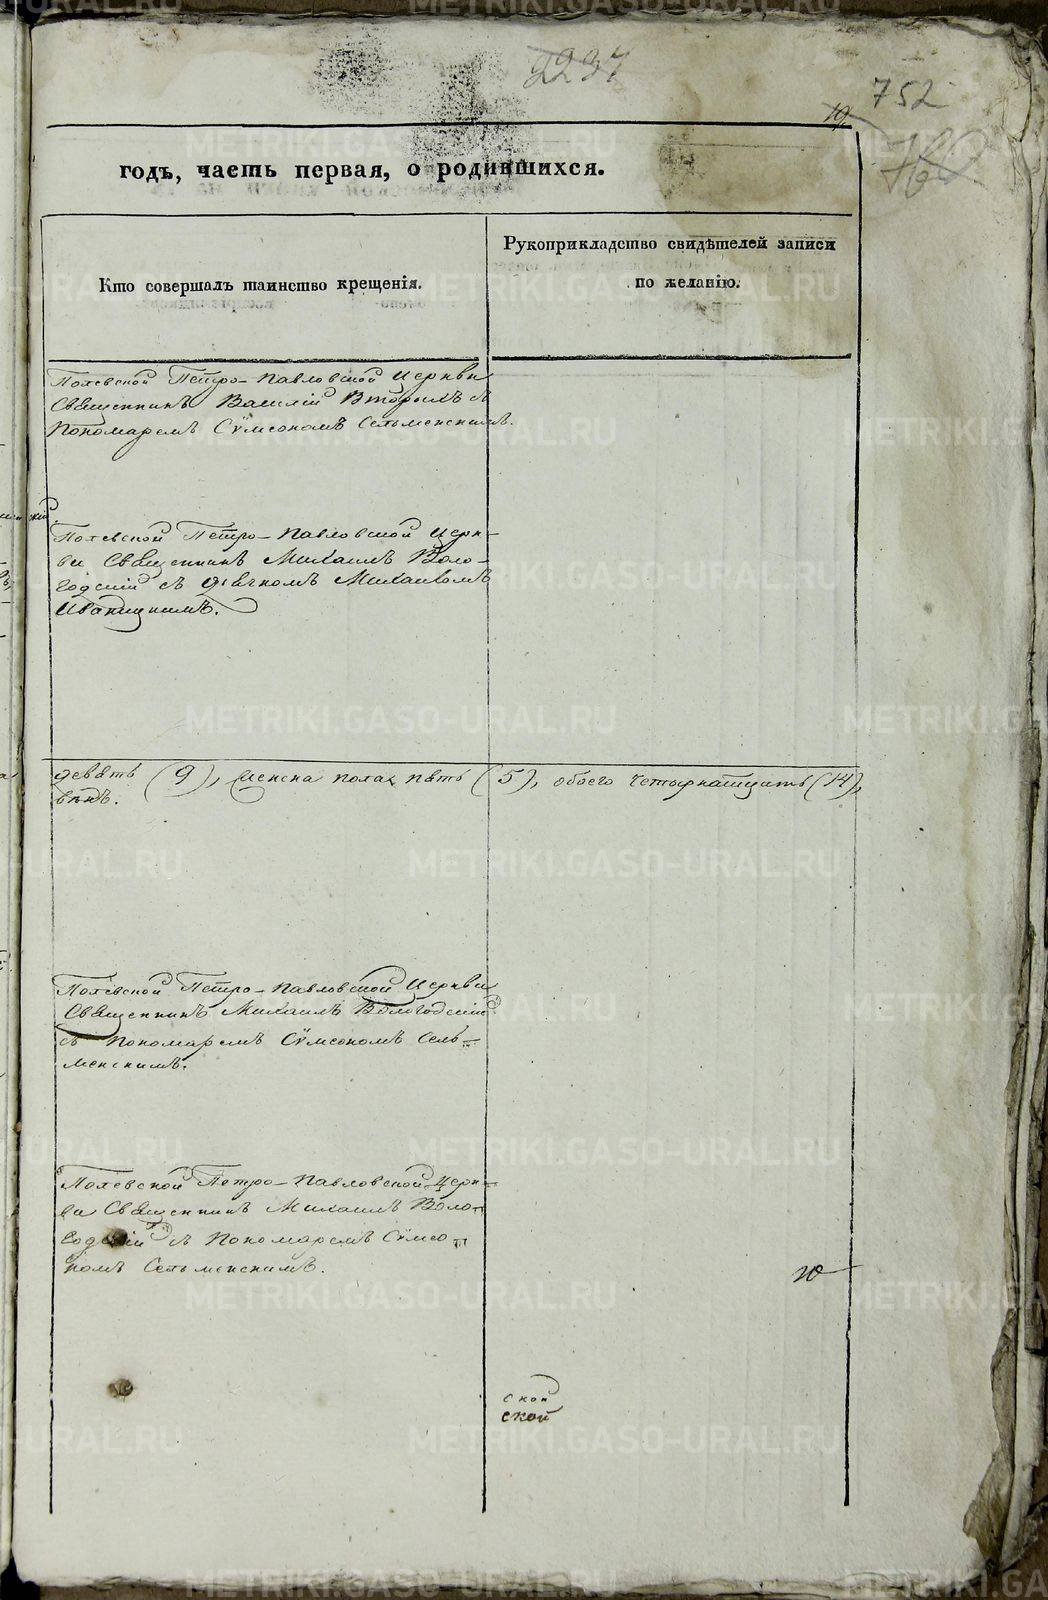 2237
752
19
годъ, часть первая, о родившихся.
Кто совершалъ таинство крещенія.
Рукоприкладство свидѣтелей записи
по желанію.
Полевской Петро-Павловской Церкви
Священникъ Василій Вторыхъ съ
Пономаремъ Сѵмеономъ Сельменскимъ.
Полевской Петро-Павловской Церк-
ви Священникъ Михаилъ Воло-
годскій съ дьячкомъ Михаиломъ
Иваницкимъ.
девять (9), женска пола пять (5), обоего четырнатцать (14),
Полевской Петро-Павловской Церкви
Священникъ Михаилъ Вологодскій
съ Пономаремъ Сѵмеономъ Сель-
менскимъ.
Полевской Петро-Павловской Церк-
ви Священникъ Михаилъ Воло-
годскій съ Пономаремъ Сѵмео-
номъ Сельменскимъ.
ю
ской
ской
METRIKI.GASO-URAL.RU